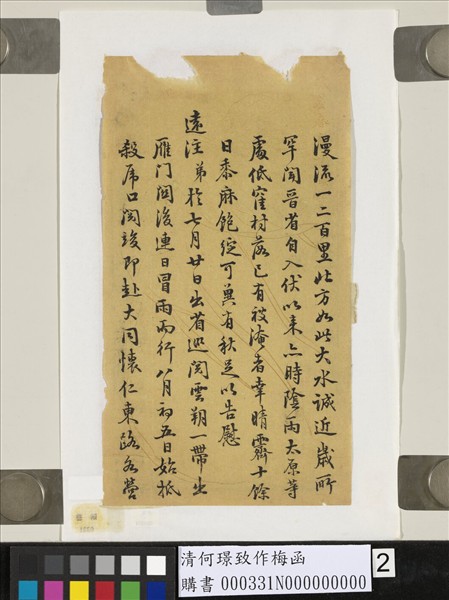 漫流一二百里此方如此大水誠近歲所
罕聞晉省自入伏以来亦時陰雨太原等
處低窪村落已有被淹者幸晴霽十餘
日黍麻飽綻可冀有秋足以告慰
遠注弟於七月廿日出省巡閱雲朔一帶出
雁门関後連日冒雨而行八月初五日始抵
殺虎口閱竣即赴大同懷仁東路各營
清何璟致作梅函
購書 000331N000000000
2